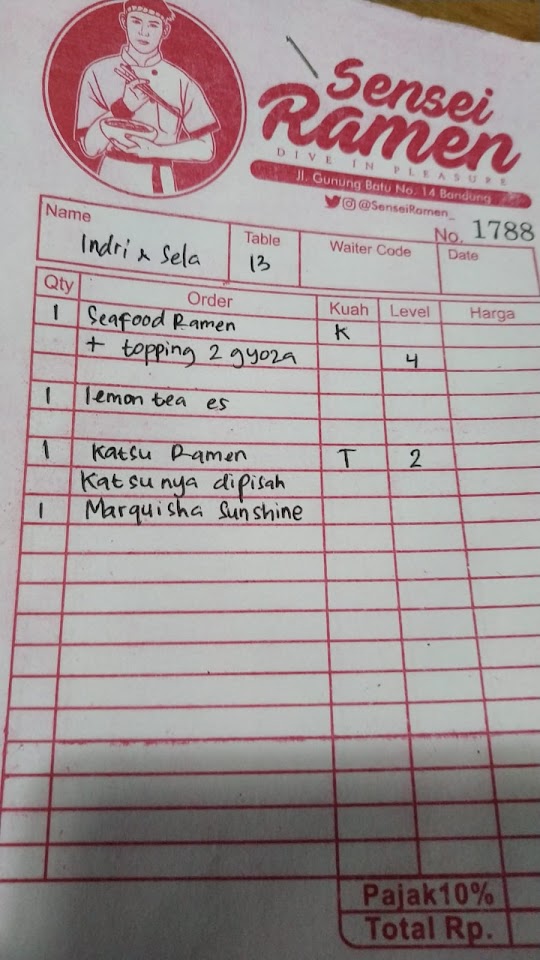 Sensei
Ramen
DIVE IN PLEASURE
Jl. Gunung Batu No. 14 Bandung
@SenseiRamen_
No. 1788
Name Indri & Sela Table 13 Waiter Code Date
Qty Order Kuah Level Harga
1 Seafood Ramen K
+ topping 2 gyoza 4
1 lemon tea es
1 Katsu Ramen T 2
Katsunya dipisah
1 Marquisha Sunshine
Pajak10%
Total Rp.